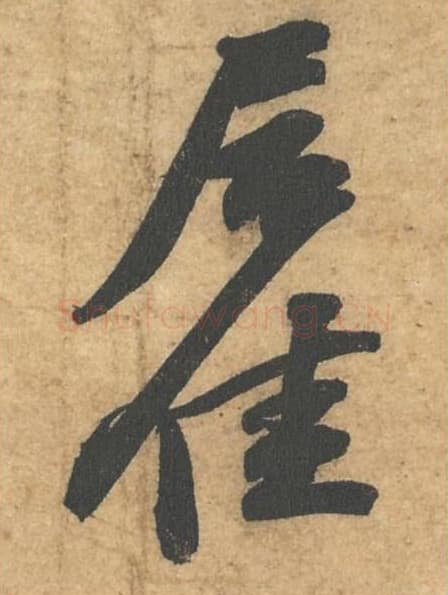 居佳
Shufawang.CN